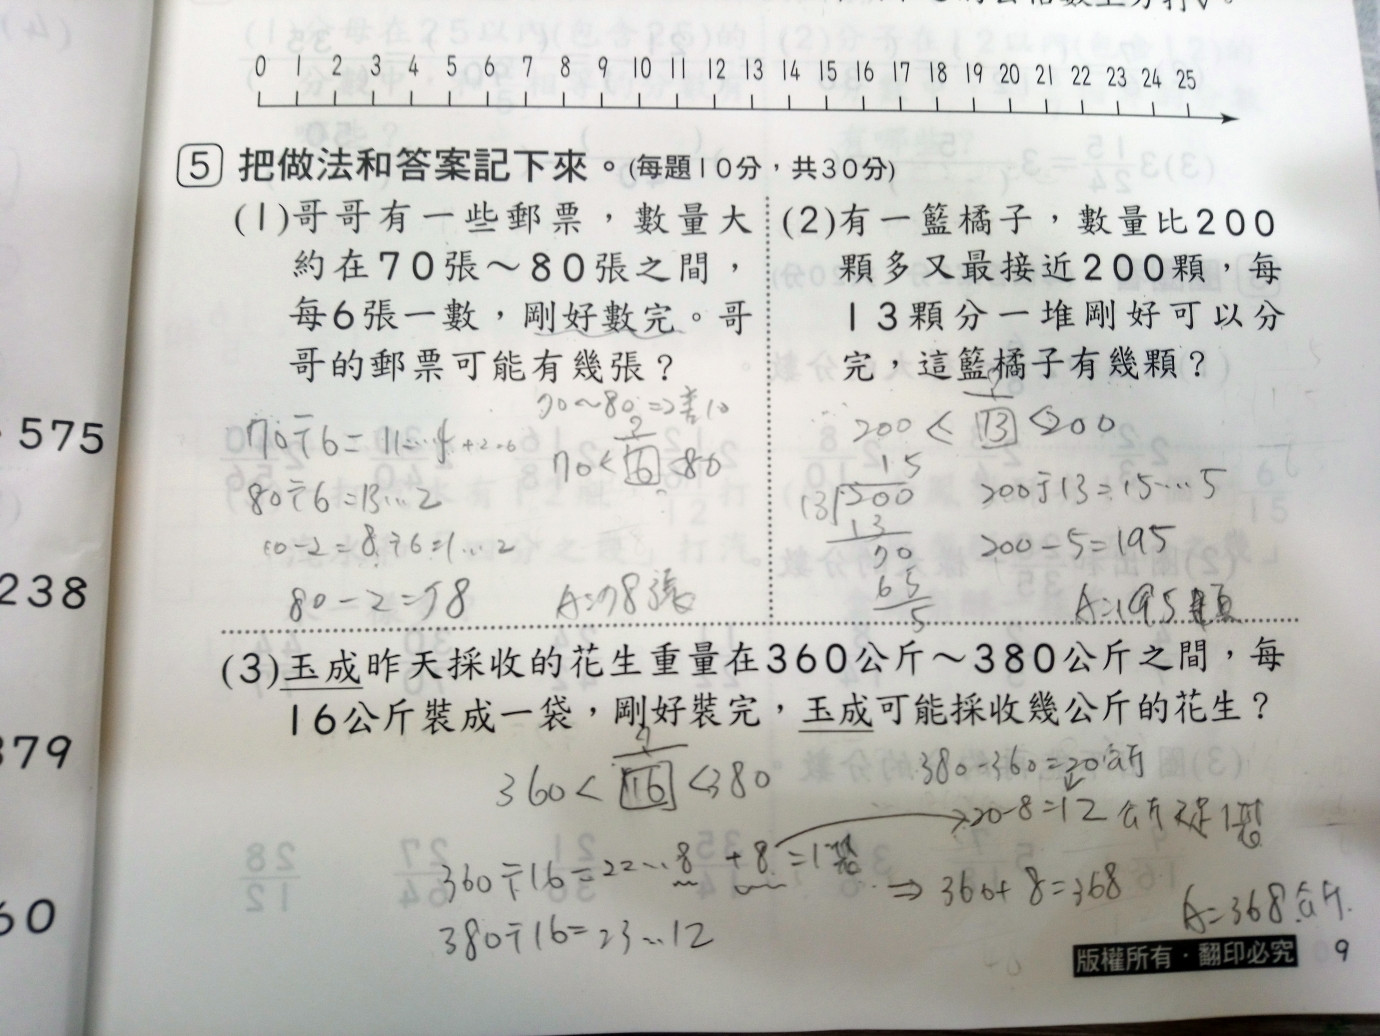 0 1 2 3 4 5 6 7 8 9 10 11 12 13 14 15 16 17 18 19 20 21 22 23 24 25
5 把做法和答案記下來。(每題10分，共30分)
(1)哥哥有一些郵票，數量大
約在70張～80張之間，
每6張一數，剛好數完。哥
哥的郵票可能有幾張？
70～80=>差10
70÷6=11…4 +2=6
70<6<80
80÷6=13…2
10-2=8÷6=1…2
80-2=78
A=78張
(2)有一籃橘子，數量比200
顆多又最接近200顆，每
13顆分一堆剛好可以分
完，這籃橘子有幾顆？
?
200<13<200
15
13 200
13
70
65
5
200÷13=15…5
200-5=195
A=195顆
(3)玉成昨天採收的花生重量在360公斤～380公斤之間，每
16公斤裝成一袋，剛好裝完，玉成可能採收幾公斤的花生？
?
360<16<380
380-360=20公斤
20-8=12公斤
360÷16=22…8 +8=1
⇒360+8=368
380÷16=23…12
A=368公斤.
版權所有・翻印必究 9
575
238
379
60